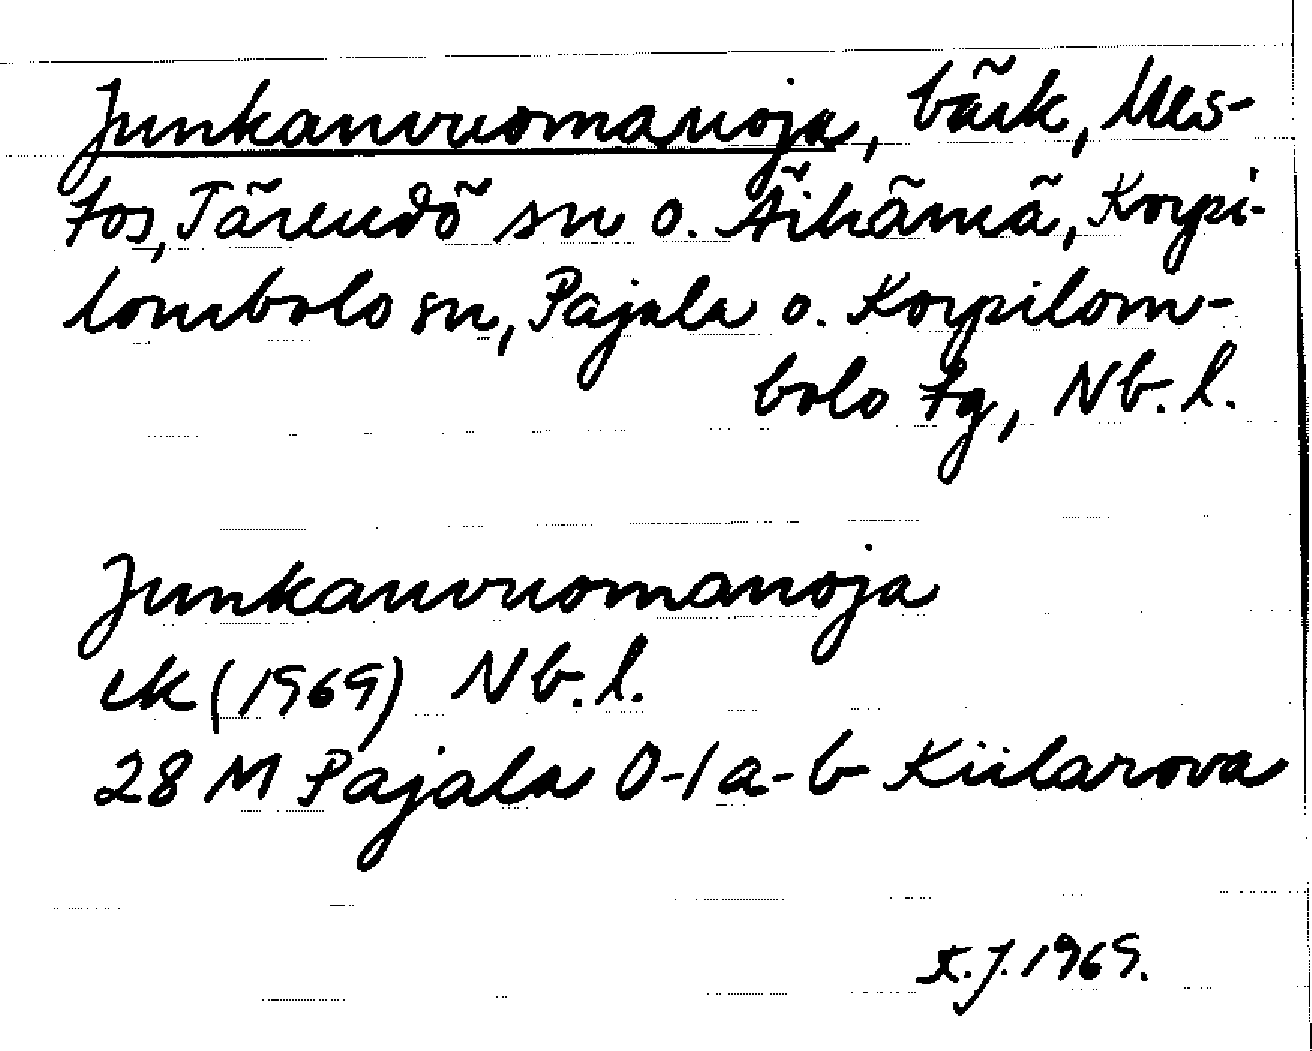 Junkanvuomanoja, bäck, Mes-
tos, Tärendö sn o. Äihämä, Korpi-
lombolo sn, Pajala o. Korpilom-
bolo tg, Nb. l.
Junkanvuomanoja
ek (1969) Nb. l.
28 M Pajala 0-1 a-b Kiilarova
K.J. 1969.